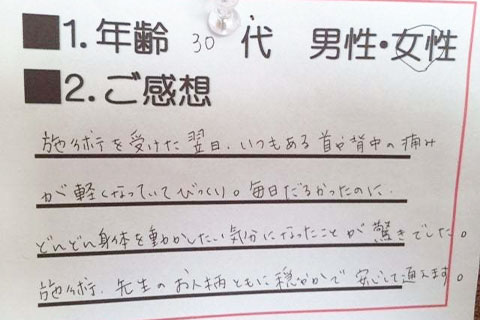 ■1.年齢 30 代 男性・女性
■2.ご感想
施術を受けた翌日、いつもある首や背中の痛み
が軽くなっていてびっくり。毎日だるかったのに、
どんどん身体を動かしたい気分になったことが驚きでした。
施術、先生のお人柄ともに穏やかで安心して通えます。